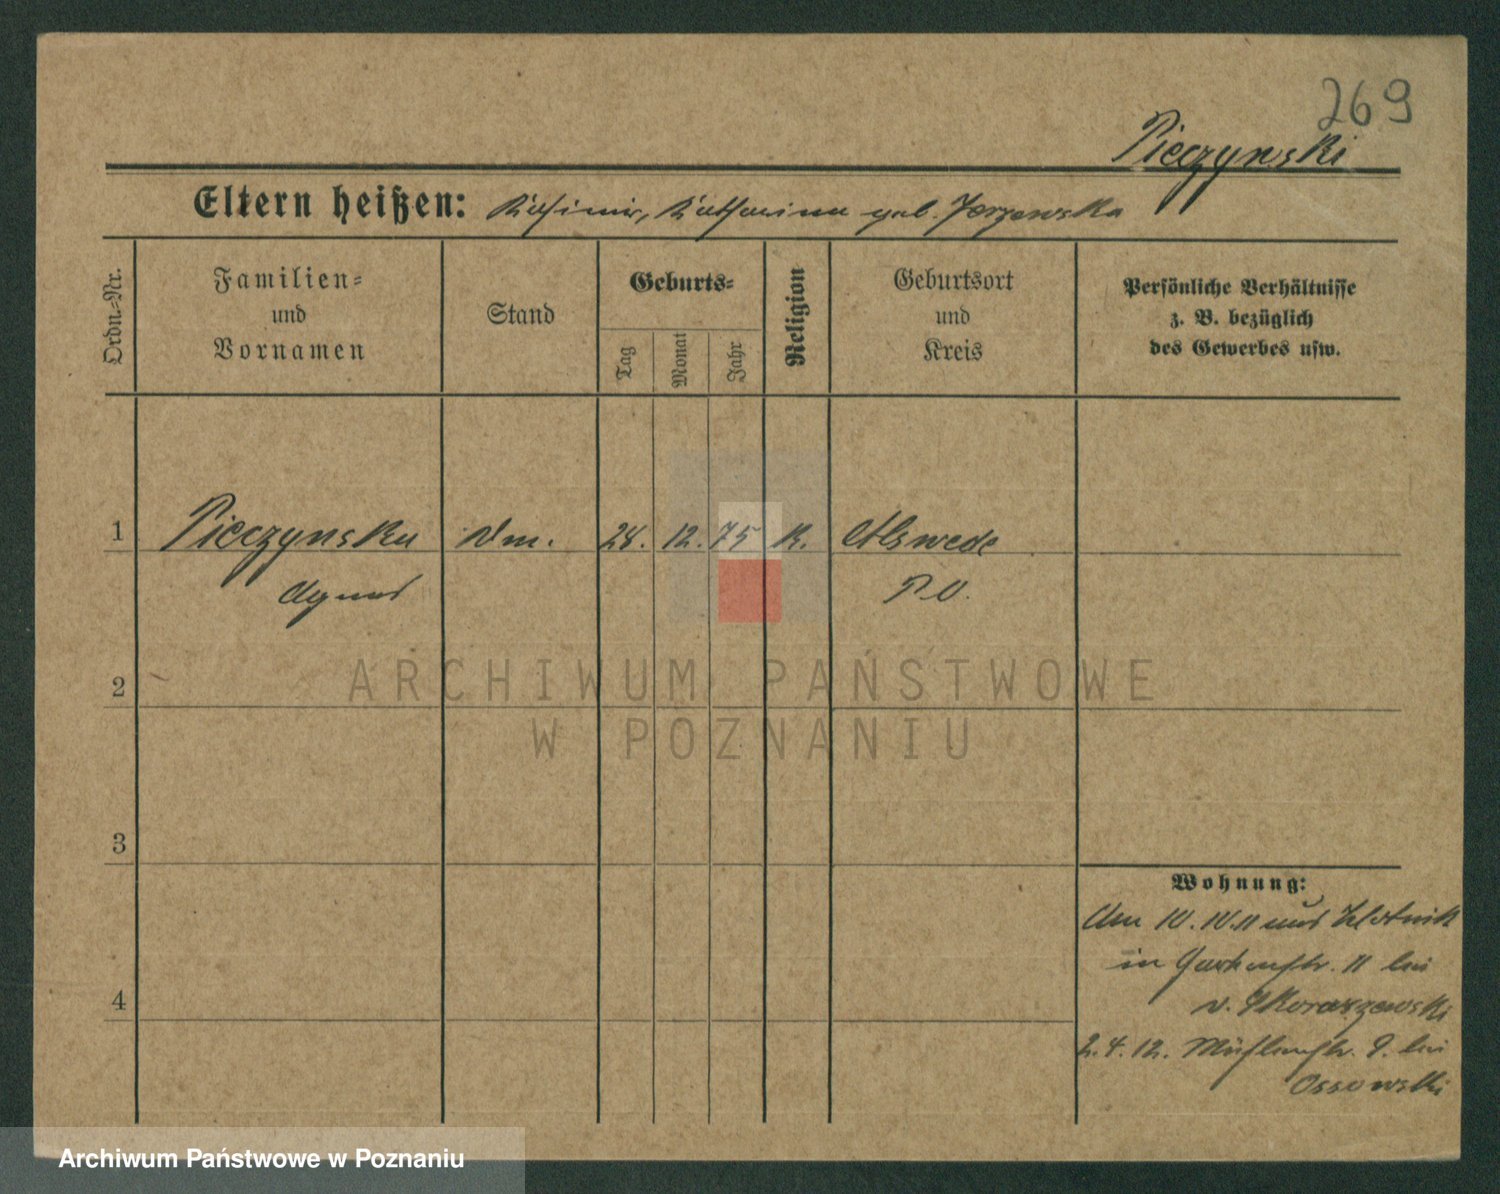 269
Pieczynski
Eltern heißen: Kasimir, Katharina geb. Jerzewska
Ordn.-Nr.
Familien-
und
Vornamen
Stand
Geburts-
Tag
Monat
Jahr
Religion
Geburtsort
und
Kreis
Persönliche Verhältnisse
z. B. bezüglich
des Gewerbes usw.
1 Pieczynska Dm. 28. 12. 75 K.
Agnes P.O.
2
3
4
Wohnung:
Am 10.10.11 aus Zlotnik
in Gartenstr. 11 bei
v. Skoraszewski
2.4.12. Mühlenstr. 9. bei
Ossowski
ARCHIWUM PAŃSTWOWE
W POZNANIU
Archiwum Państwowe w Poznaniu